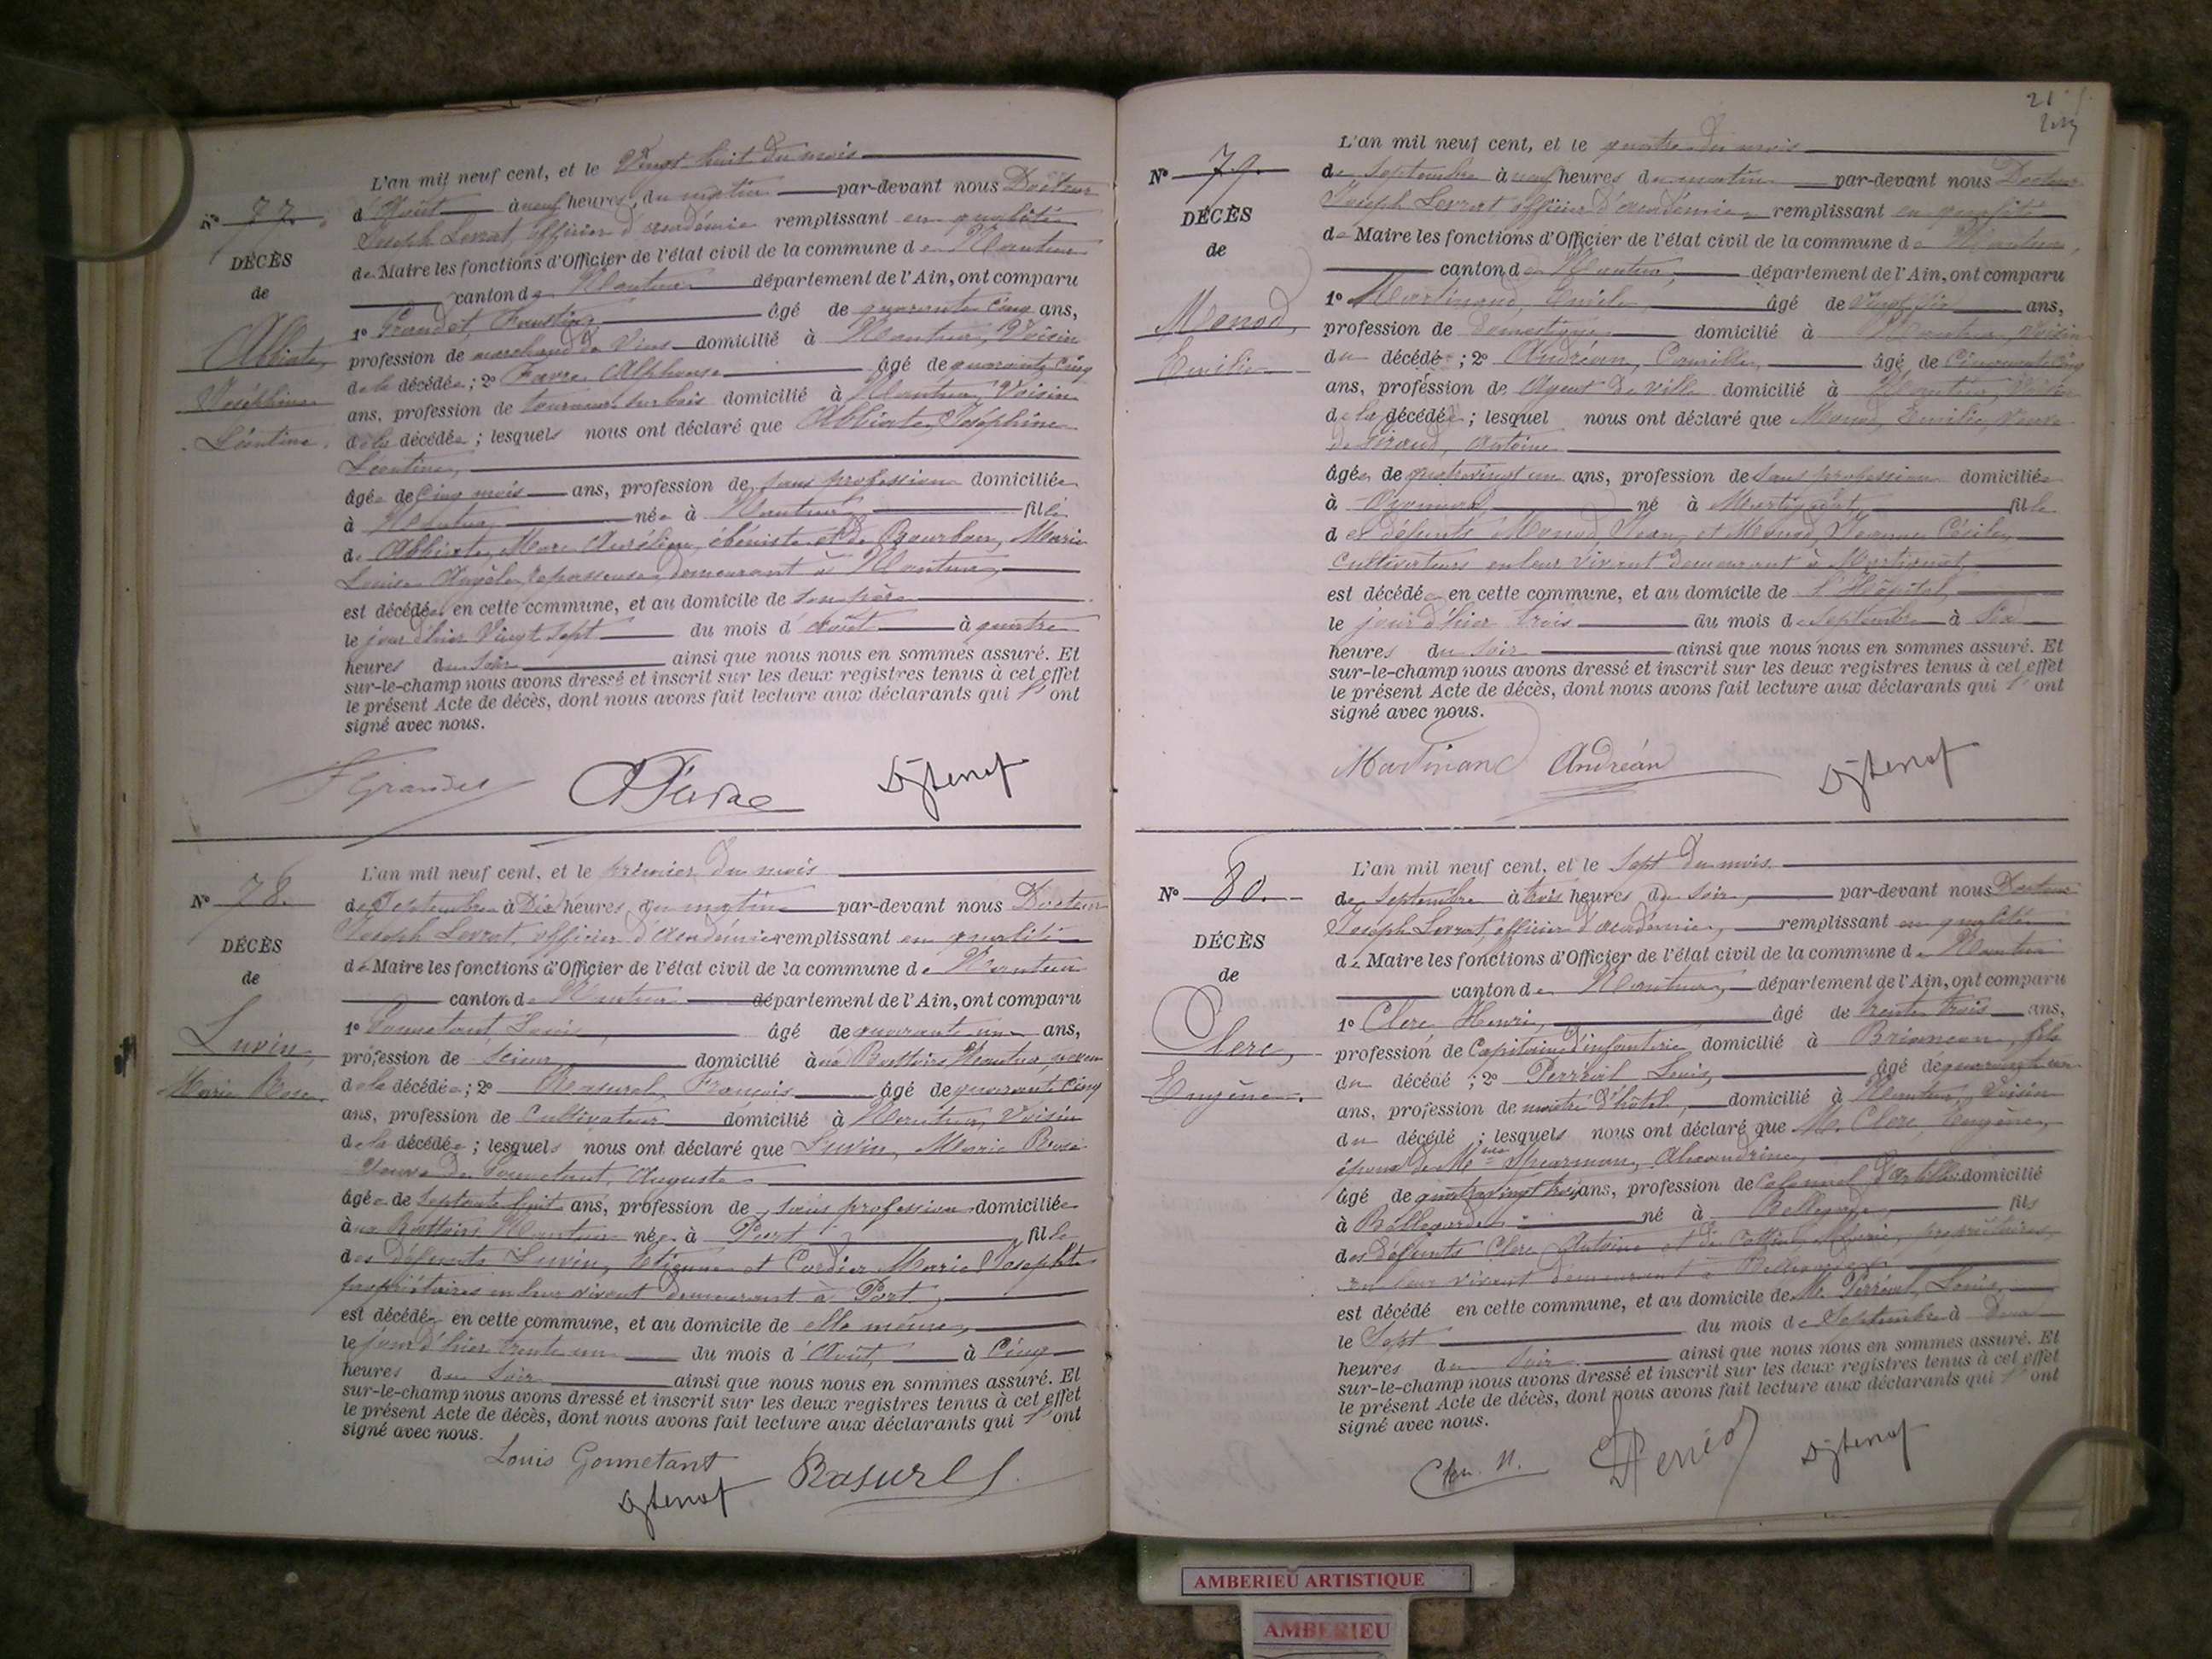 L'an mil neuf cent, et le Vingt huit du mois
Nº 77.
d'Août à neuf heures du matin par-devant nous Docteur
Joseph Levrat, officier d'académie remplissant en qualité
DÉCÈS
de Maire les fonctions d'Officier de l'état civil de la commune de Nantua
de
canton de Nantua département de l'Ain, ont comparu
1º Grandet, Faustin âgé de quarante cinq ans,
Abbiate,
profession de marchand de vins domicilié à Nantua, Voisin
de la décédée; 2º Favre Alphonse âgé de quarante cinq
Joséphine
ans, profession de tourneur sur bois domicilié à Nantua, Voisin
Léontine.
de la décédée; lesquels nous ont déclaré que Abbiate, Joséphine
Léontine,
âgée de cinq mois ans, profession de sans profession domiciliée
à Nantua née à Nantua fille
de Abbiate, Marc Aurélien, ébéniste et de Bourbon, Marie
Louise Angèle, repasseuse, demeurant à Nantua,
est décédée en cette commune, et au domicile de son père
le jour d'hier Vingt sept du mois d'Août à quatre
heures du soir ainsi que nous nous en sommes assuré. Et
sur-le-champ nous avons dressé et inscrit sur les deux registres tenus à cet effet
le présent Acte de décès, dont nous avons fait lecture aux déclarants qui l'ont
signé avec nous.
F Grandet A Favre
L'an mil neuf cent, et le premier du mois
Nº 78.
de Septembre à Dix heures du matin par-devant nous Docteur
Joseph Levrat, officier d'Académie remplissant en qualité
DÉCÈS
de Maire les fonctions d'Officier de l'état civil de la commune de Nantua
de
canton de Nantua département de l'Ain, ont comparu
1º Gonnetant Louis, âgé de quarante un ans,
Luvin,
profession de scieur domicilié à Nantua,
Marie Rose
de la décédée; 2º Rasurel, François âgé de quarante cinq
ans, profession de Cultivateur domicilié à Nantua, Voisin
de la décédée; lesquels nous ont déclaré que Luvin, Marie Rose
Veuve de Gonnetant, Auguste
âgée de septante huit ans, profession de sans profession domiciliée
Nantua née à Port fille
des défunts Luvin, Etienne et Cordier Marie Josephte
propriétaires en leur vivant demeurant à Port,
est décédée en cette commune, et au domicile de elle même,
le jour d'hier trente un du mois d'Août, à Cinq
heures du soir ainsi que nous nous en sommes assuré. Et
sur-le-champ nous avons dressé et inscrit sur les deux registres tenus à cet effet
le présent Acte de décès, dont nous avons fait lecture aux déclarants qui l'ont
signé avec nous.
Louis Gonnetant Rasurel
L'an mil neuf cent, et le quatre du mois
Nº 79.
de Septembre à neuf heures du matin par-devant nous Docteur
Joseph Levrat officier d'académie remplissant en qualité
DÉCÈS
de Maire les fonctions d'Officier de l'état civil de la commune de Nantua,
de
canton de Nantua, département de l'Ain, ont comparu
1º Martinand, Emile, âgé de Vingt six ans,
Monod,
profession de domestique domicilié à Nantua, Voisin
Emilie
du décédé; 2º Andréan, Camille, âgé de Cinquante cinq
ans, profession de Agent de ville domicilié à Nantua, Voisin
de la décédée; lesquel nous ont déclaré que Monod, Emilie, Veuve
de Giraud, Antoine
âgée de quatrevingt un ans, profession de sans profession domiciliée
à né à Martignat, fille
des défunts Monod Jean, et Monod, Jeanne Cécile,
Cultivateurs en leur vivant demeurant à Martignat,
est décédée en cette commune, et au domicile de l'Hôpital,
le jour d'hier trois du mois de Septembre à Six
heures du soir ainsi que nous nous en sommes assuré. Et
sur-le-champ nous avons dressé et inscrit sur les deux registres tenus à cet effet
le présent Acte de décès, dont nous avons fait lecture aux déclarants qui l'ont
signé avec nous.
Martinand Andréan
L'an mil neuf cent, et le Sept du mois
Nº 80.
de Septembre à trois heures du soir, par-devant nous Docteur
Joseph Levrat, officier d'académie, remplissant en qualité
DÉCÈS
de Maire les fonctions d'Officier de l'état civil de la commune de Nantua
de
canton de Nantua, département de l'Ain, ont comparu
Clerc,
1º Clerc Henri, âgé de trente trois ans,
profession de Capitaine d'infanterie domicilié à Briançon, fils
Eugène.
du décédé; 2º Perréal Louis, âgé de quarante un
ans, profession de maître d'hôtel, domicilié à Nantua, Voisin
du décédé; lesquels nous ont déclaré que M. Clerc Eugène,
époux de Mme Spearman, Alexandrine,
âgé de quatrevingt trois ans, profession de Colonel d'artillerie domicilié
à Bellegarde né à Bellegarde, fils
des défunts Clerc, Antoine et de Marie, propriétaires,
en leur vivant demeurant à Bellegarde
est décédé en cette commune, et au domicile de M. Perréal, Louis,
le Sept du mois de Septembre à Deux
heures du soir ainsi que nous nous en sommes assuré. Et
sur-le-champ nous avons dressé et inscrit sur les deux registres tenus à cet effet
le présent Acte de décès, dont nous avons fait lecture aux déclarants qui l'ont
signé avec nous.
AMBERIEU ARTISTIQUE
AMBERIEU